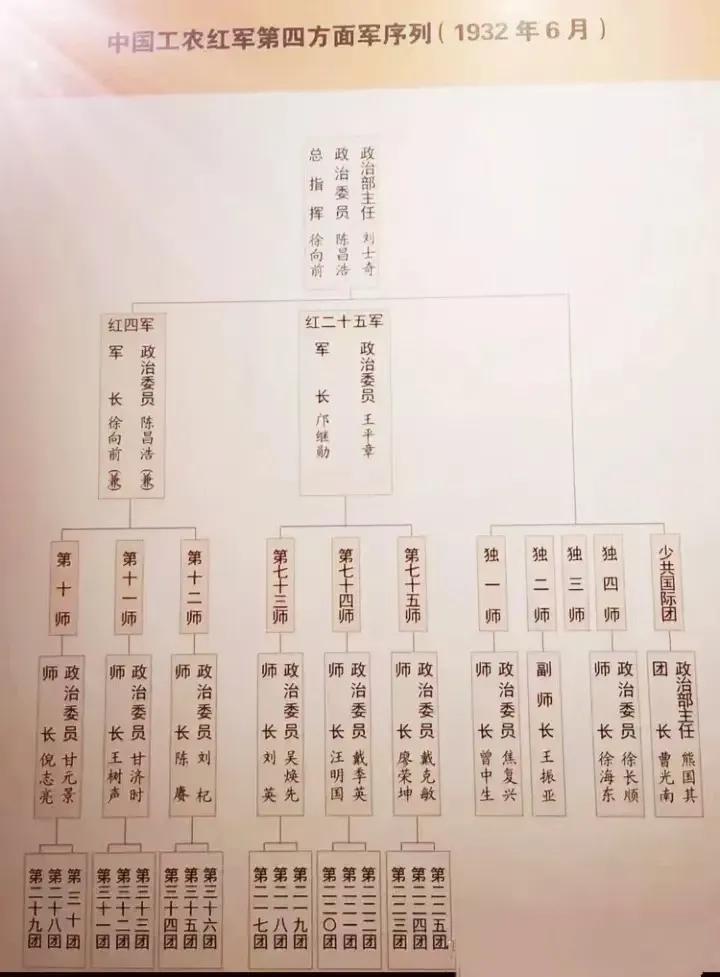 中国工农红军第四方面军序列(1932年6月)
总指挥 徐向前
政治委员 陈昌浩
政治部主任 刘士奇
红四军
军长 徐向前(兼)
政治委员 陈昌浩(兼)
红二十五军
军长 邝继勋
政治委员 王平章
第十师
第十一师
第十二师
第七十三师
第七十四师
第七十五师
独一师
独二师
独三师
独四师
少共国际团
师长 倪志亮
政治委员 甘元景
师长 王树声
政治委员 甘济时
师长 陈赓
政治委员 刘杞
师长 刘英
政治委员 吴焕先
师长 汪明国
政治委员 戴季英
师长 廖荣坤
政治委员 戴克敏
师长 曾中生
政治委员 焦复兴
副师长 王振亚
师长 徐海东
政治委员 徐长顺
团长 曹光南
政治部主任 熊国其
第二十九团
第二十八团
第三十团
第三十一团
第三十二团
第三十三团
第三十四团
第三十五团
第三十六团
第二一七团
第二一八团
第二一九团
第二二〇团
第二二一团
第二二二团
第二二三团
第二二四团
第二二五团